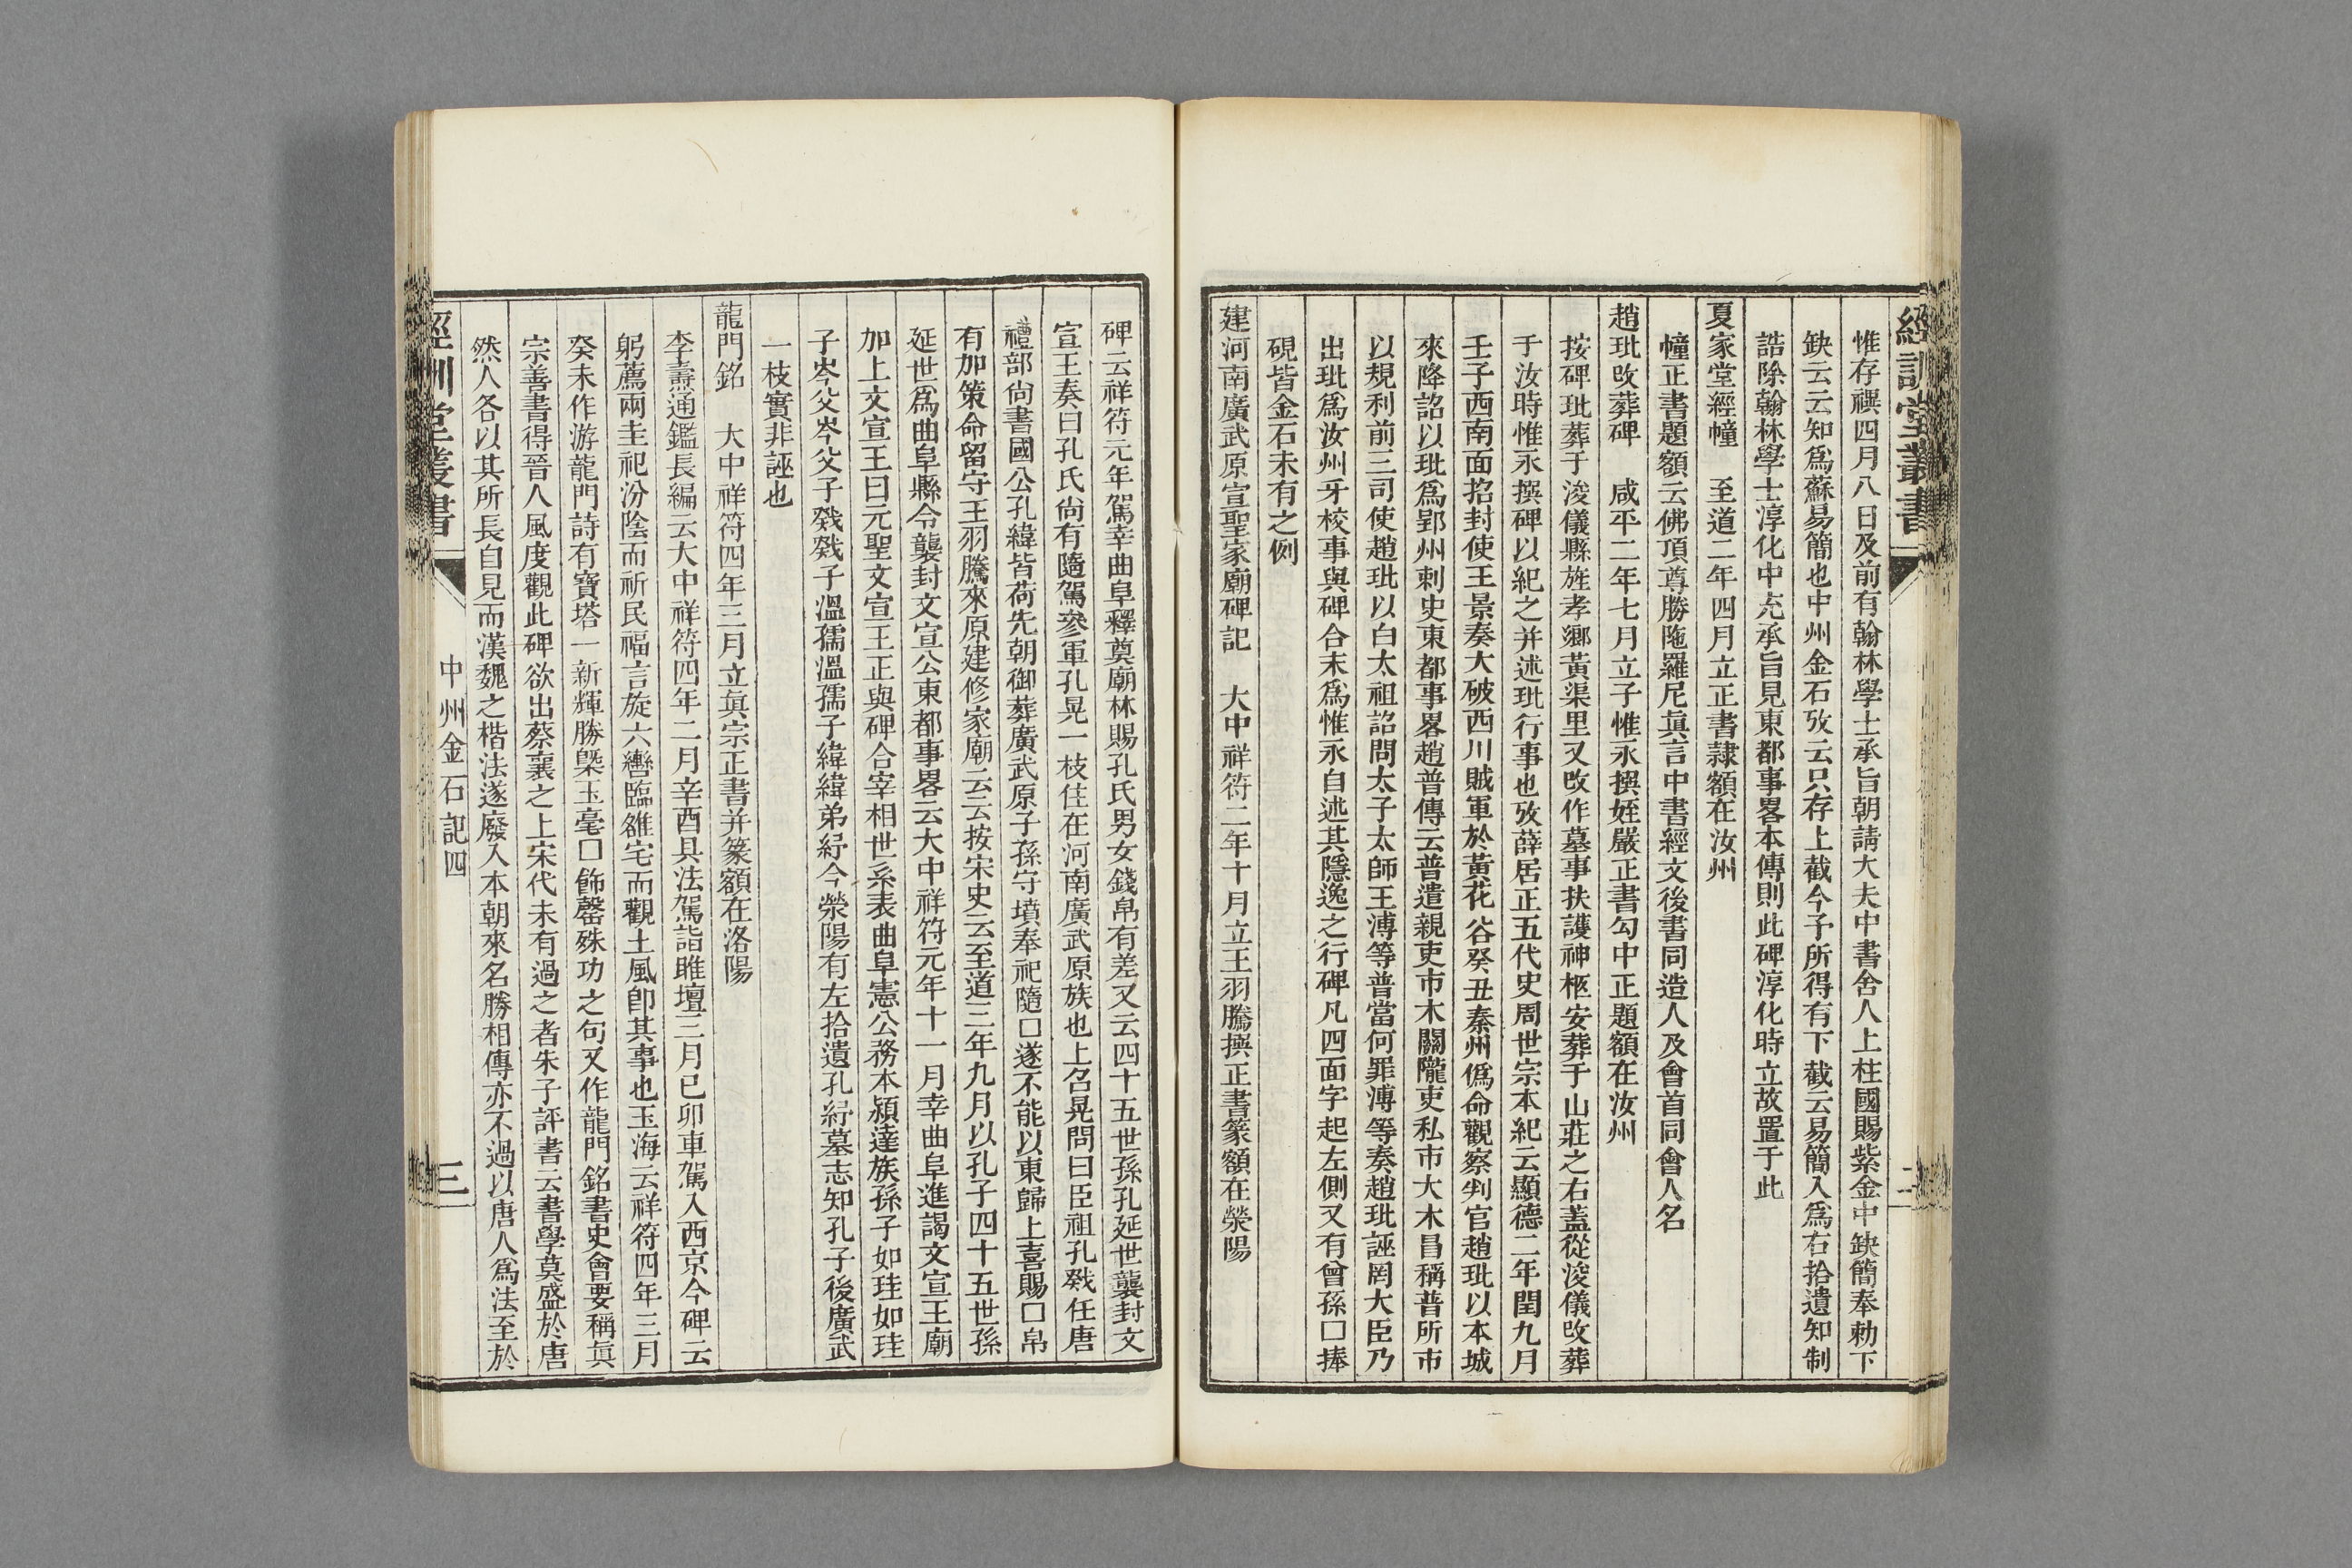 經訓堂叢書
二
惟存禩四月八日及前有翰林學士承旨朝請大夫中書舍人上柱國賜紫金中缺簡奉勑下
缺云云知爲蘇易簡也中州金石攷云只存上截今予所得有下截云易簡入爲右拾遺知制
誥除翰林學士淳化中充承旨見東都事畧本傳則此碑淳化時立故置于此
夏家堂經幢　至道二年四月立正書隷額在汝州
幢正書題額云佛頂尊勝陁羅尼眞言中書經文後書同造人及會首同會人名
趙玭改葬碑　咸平二年七月立子惟永撰姪嚴正書勾中正題額在汝州
按碑玭葬于浚儀縣旌孝鄉黃渠里又改作墓事扶護神柩安葬于山莊之右蓋從浚儀改葬
于汝時惟永撰碑以紀之并述玭行事也攷薛居正五代史周世宗本紀云顯德二年閏九月
壬子西南面招封使王景奏大破西川賊軍於黃花谷癸丑秦州僞命觀察判官趙玭以本城
來降詔以玭爲郢州刺史東都事畧趙普傳云普遣親吏市木關隴吏私市大木昌稱普所市
以規利前三司使趙玭以白太祖詔問太子太師王溥等普當何罪溥等奏趙玭誣罔大臣乃
出玭爲汝州牙校事與碑合末爲惟永自述其隱逸之行碑凡四面字起左側又有曾孫口捧
硯皆金石未有之例
建河南廣武原宣聖家廟碑記　大中祥符二年十月立王羽騰撰正書篆額在滎陽
碑云祥符元年駕幸曲阜釋奠廟林賜孔氏男女錢帛有差又云四十五世孫孔延世襲封文
宣王奏曰孔氏尙有隨駕參軍孔晃一枝住在河南廣武原族也上召晃問曰臣祖孔戣任唐
禮部尙書國公孔緯皆荷先朝御葬廣武原子孫守墳奉祀隨口遂不能以東歸上喜賜口帛
有加策命留守王羽騰來原建修家廟云云按宋史云至道三年九月以孔子四十五世孫
延世爲曲阜縣令襲封文宣公東都事畧云大中祥符元年十一月幸曲阜進謁文宣王廟
加上文宣王曰元聖文宣王正與碑合宰相世系表曲阜憲公務本潁達族孫子如珪如珪
子岑父岑父子戣戣子溫孺溫孺子緯緯弟紓今滎陽有左拾遺孔紓墓志知孔子後廣武
一枝實非誣也
龍門銘　大中祥符四年三月立眞宗正書并篆額在洛陽
李燾通鑑長編云大中祥符四年二月辛酉具法駕詣脽壇三月己卯車駕入西京今碑云
躬薦兩圭祀汾陰而祈民福言旋六轡臨雒宅而觀土風卽其事也玉海云祥符四年三月
癸未作游龍門詩有寶塔一新輝勝槩玉毫口飾罄殊功之句又作龍門銘書史會要稱眞
宗善書得晉人風度觀此碑欲出蔡襄之上宋代未有過之者朱子評書云書學莫盛於唐
然人各以其所長自見而漢魏之楷法遂廢入本朝來名勝相傳亦不過以唐人爲法至於
經訓堂叢書
中州金石記四
三